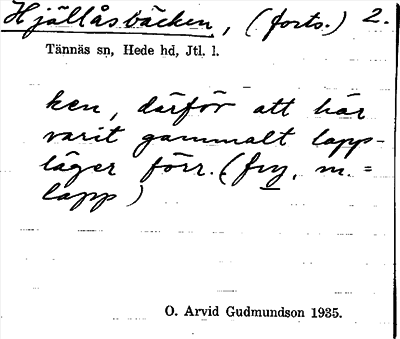 Hjällåsbäcken, (forts.) 2.
Tännäs sn, Hede hd, Jtl. l.
ken, därför att här
varit gammalt lapp-
läger förr. (fry, m. =
lapp)
O. Arvid Gudmundson 1935.